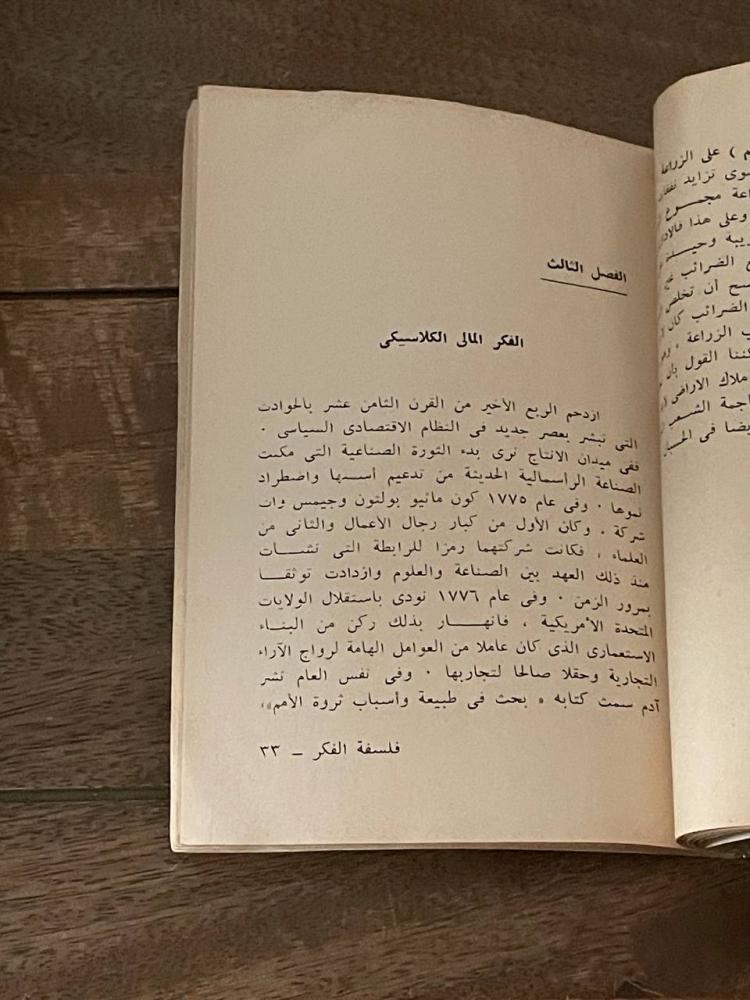 الفصل الثالث
الفكر المالى الكلاسيكى
ازدحم الربع الأخير من القرن الثامن عشر بالحوادث
التى تبشر بعصر جديد فى النظام الاقتصادى السياسى ٠
ففى ميدان الانتاج نرى بدء الثورة الصناعية التى مكنت
الصناعة الرأسمالية الحديثة من تدعيم أسسها واضطراد
نموها ٠ وفى عام ١٧٧٥ كون ماثيو بولتون وجيمس وات
شركة ٠ وكان الأول من كبار رجال الأعمال والثانى من
العلماء ، فكانت شركتهما رمزا للرابطة التى نشــات
منذ ذلك العهد بين الصناعة والعلوم وازدادت توثقــا
بمرور الزمن ٠ وفى عام ١٧٧٦ نودى باستقلال الولايات
المتحدة الأمريكية ، فانهــار بذلك ركن من البنــاء
الاستعمارى الذى كان عاملا من العوامل الهامة لرواج الآراء
التجارية وحقلا صالحا لتجاربها ٠ وفى نفس العام نشر
آدم سمث كتابه « بحث فى طبيعة وأسباب ثروة الأمم»،
فلسفة الفكر ــ ٣٣
م ) على الزراعة
سوى تزايد نفقات
مجمــوع
وعلى هذا
وحيــدة
الضرائب
أن تخلص
الضرائب كان
الزراعة ،
القول بأن
ملاك الاراضى
الشعب
فى